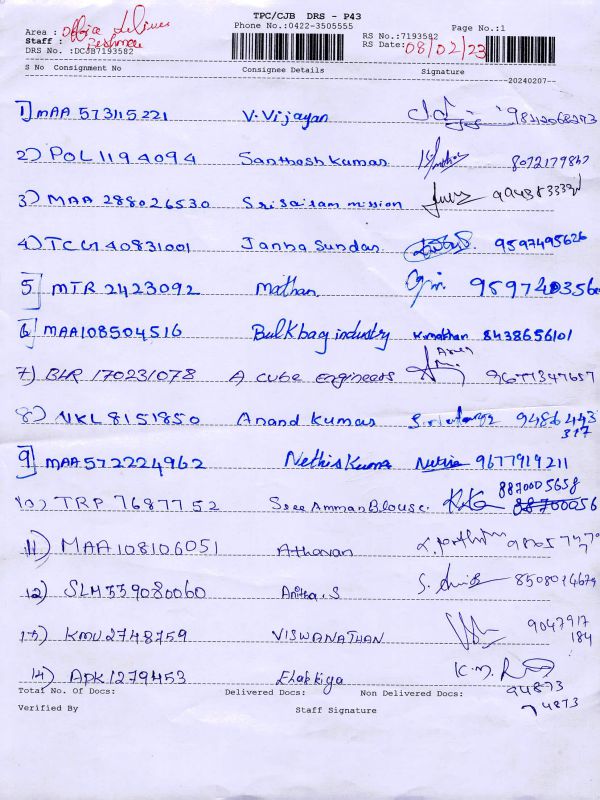 TPC/CJB DRS - P43
Phone No.:0422-3505555
Page No.:1
Area : Office delivery
Staff : Reshma
DRS No. :DCJB7193582
RS No.:7193582
RS Date: 08/02/23
S No Consignment No Consignee Details Signature
--20240207--
1) MAA 573115221 V. Vijayan
2) POL 1194094 Santhosh kumar 8072179867
3) MAA 288026530 Sri sairam mission
4) TCU 40831001 Janna Sundar 9597495626
5) MTR 2423092 Mathan 959740356
6) MAA108504516 Bulk bag industry K.mathan 8438656101
7) BLR 170231078 A cube engineers Arun 9677347657
8) NKL 8151850 Anand Kumar 9486443
317
9) MAA 572224962 Nethis Kumar 9677919211
8870005658
10) TRP 7687752 Sree Amman Blouse.
11) MAA 108106051 Athavan
12) SLM 559080060 Anitha.S 8508014679
13) KMU 2748759 VISWANATHAN 9047917
184
14) APK 1279453 Elakkiya K.M.
94873
74873
Total No. Of Docs: Delivered Docs: Non Delivered Docs:
Verified By Staff Signature